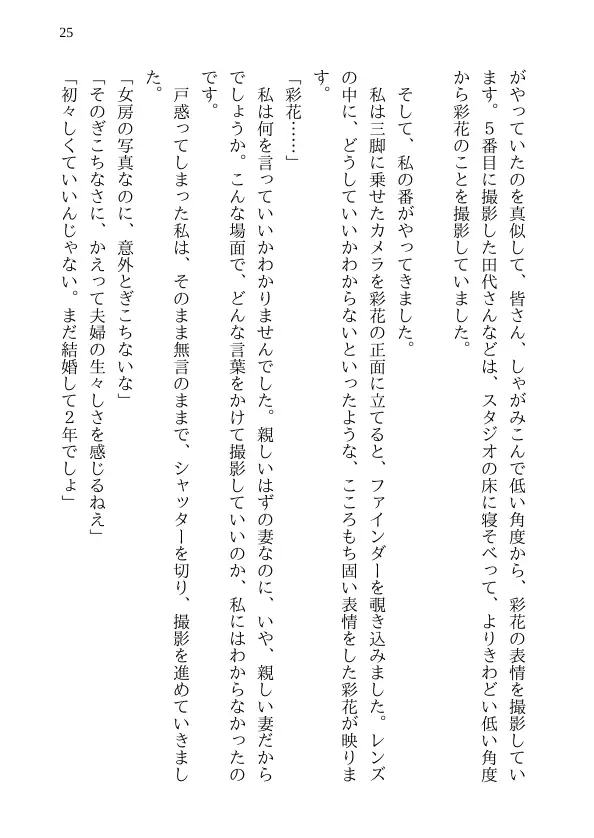 25
がやっていたのを真似して、皆さん、しゃがみこんで低い角度から、彩花の表情を撮影してい
ます。５番目に撮影した田代さんなどは、スタジオの床に寝そべって、よりきわどい低い角度
から彩花のことを撮影していました。
そして、私の番がやってきました。
私は三脚に乗せたカメラを彩花の正面に立てると、ファインダーを覗き込みました。レンズ
の中に、どうしていいかわからないといったような、こころもち固い表情をした彩花が映りま
す。
「彩花……」
私は何を言っていいかわかりませんでした。親しいはずの妻なのに、いや、親しい妻だから
でしょうか。こんな場面で、どんな言葉をかけて撮影していいのか、私にはわからなかったの
です。
戸惑ってしまった私は、そのまま無言のままで、シャッターを切り、撮影を進めていきまし
た。
「女房の写真なのに、意外とぎこちないな」
「そのぎこちなさに、かえって夫婦の生々しさを感じるねえ」
「初々しくていいんじゃない。まだ結婚して２年でしょ」